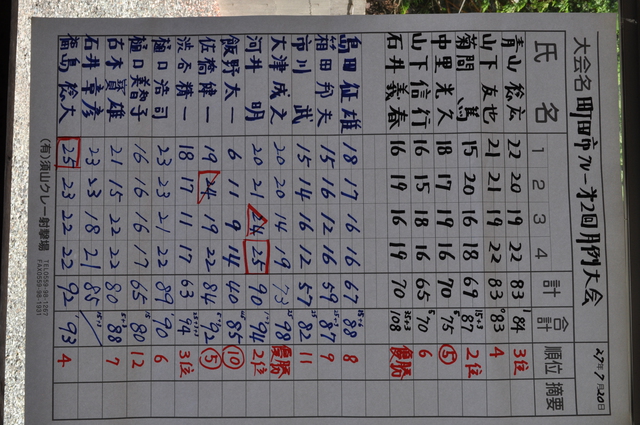 大会名 町田市クレー第2回月例大会
27年7月20日
氏名 1 2 3 4 計 合計 順位 摘要
青山 総広 22 20 19 22 83 1 84 3位
山下 友也 21 21 19 22 83 0 83 4
菊間 馬 15 20 16 18 69 87 2位
中里 光久 18 17 19 16 70 5 75 ⑤
山下 信行 16 15 18 16 65 5 70 6
石井 義春 16 19 16 19 70 108 優勝
島田 征雄 18 17 16 16 67 88 8
稲田 邦夫 15 16 12 16 59 87 9
市川 武 15 14 16 12 57 82 11
大津 成之 20 20 14 19 73 98 優勝
河井 明 20 21 24 25 90 94 2位
飯野 大一 6 11 9 14 40 85 ⑩
佐橋 健一 19 24 19 22 84 92 ⑤
渋谷 勝一 18 17 11 17 63 74 3位
樋口 浩司 23 23 21 22 89 90 6
樋口 美智子 16 16 16 17 65 80 12
古木 賢雄 21 15 22 22 80 88 7
石井 章彦 23 23 18 21 85
福島 総大 25 23 22 22 92 93 4
(有)須山クレー射撃場 TEL0559-98-1267
FAX0559-98-1931